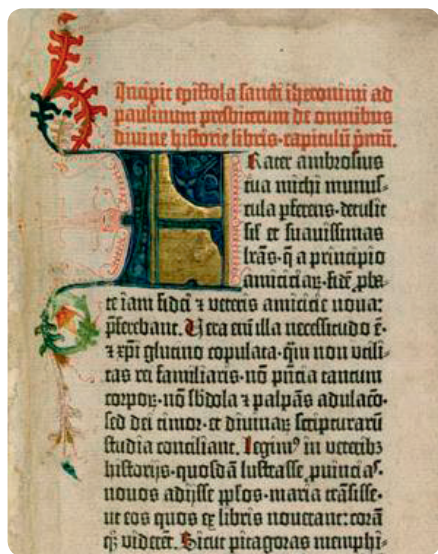 Incipit epistola sancti iheronimi ad
paulinum presbiterum de omnibus
divine historie libris·capitulū pmū.
Frater ambrosius
tua michi munus-
cula pferens·detulit
sil et suavissimas
lrās·q̄ a principio
amiciciaꝝ·fidē pba-
te iam fidei ⁊ veteris amicicie nova:
pferebant. Vera enī illa necessitudo ē·
⁊ xpi glutino copulata·qm̄ non utili-
tas rei familiaris·nō pn̄cia tantum
corpoꝝ·nō sbdola ⁊ palpās adulacō·
sed dei timor·et divinaꝝ scripturarū
studia conciliant. Legimꝰ in veteribꝫ
historijs·quosdā lustrasse puīcias·
novos adijsse pplos·maria trāsisse·
ut eos quos ex libris noverant: corā
qꝫ viderēt. Sicut pitagoras memphi-